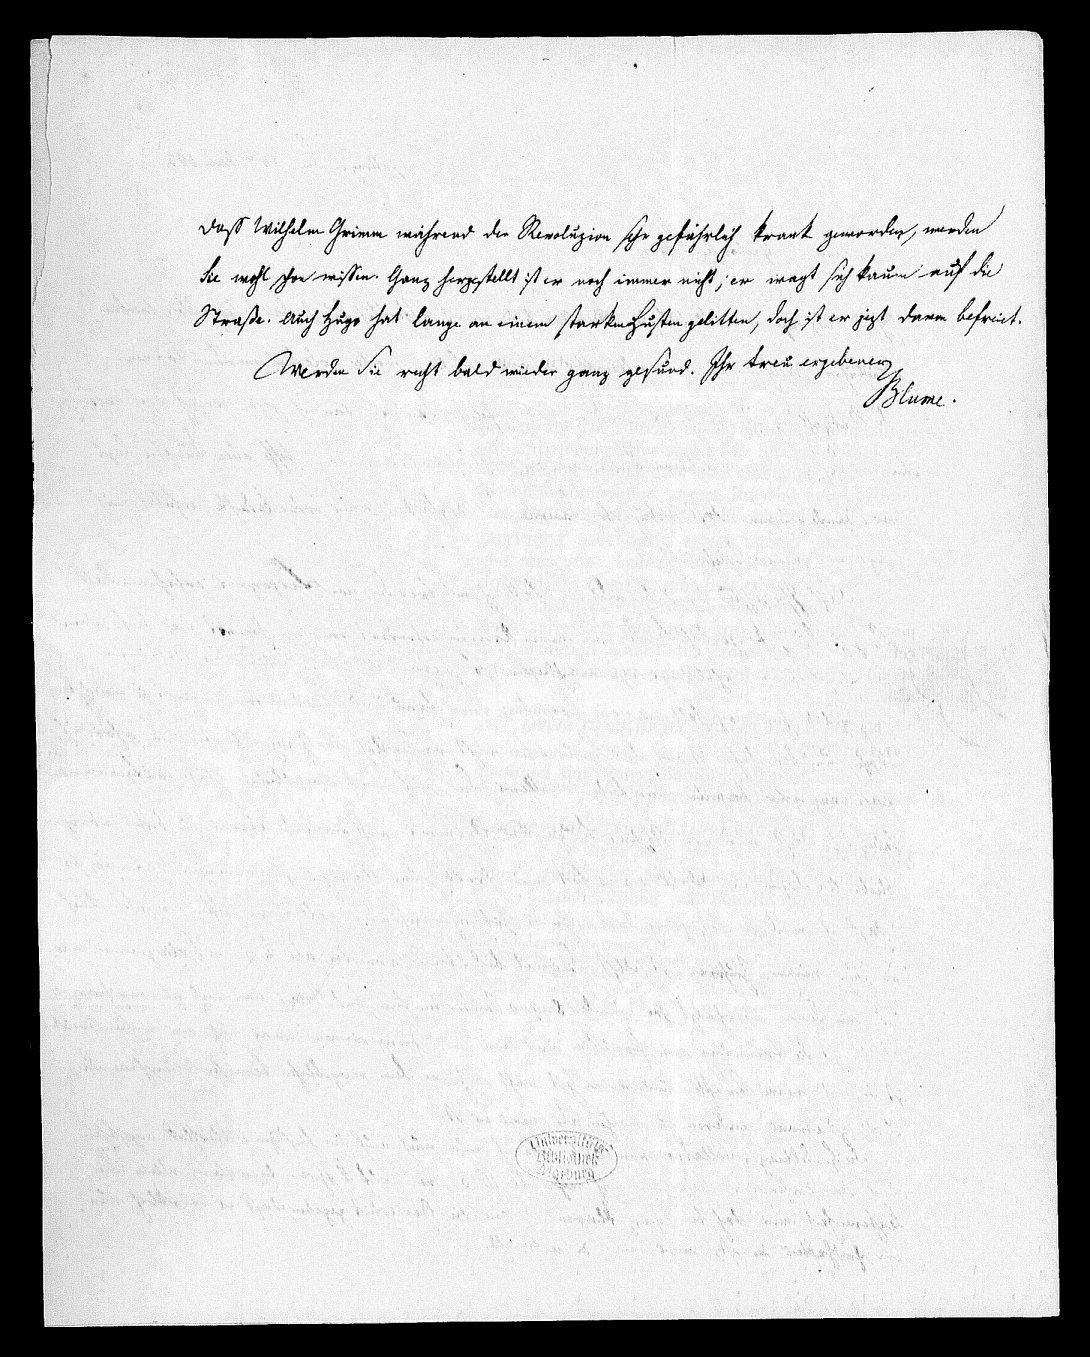 Daß Wilhelm Grimm während der Revoluzion sehr gefährlich krank geworden, werden
Sie wohl schon wissen. Ganz hergestellt ist er noch immer nicht; er wagt sich kaum auf die
Straße. Auch Hugo hat lange an einem starken Husten gelitten, doch ist er jezt davon befreit.
Werden Sie recht bald wieder ganz gesund. Ihr treu ergebener
Blume.
Universitäts-
Bibliothek
Marburg